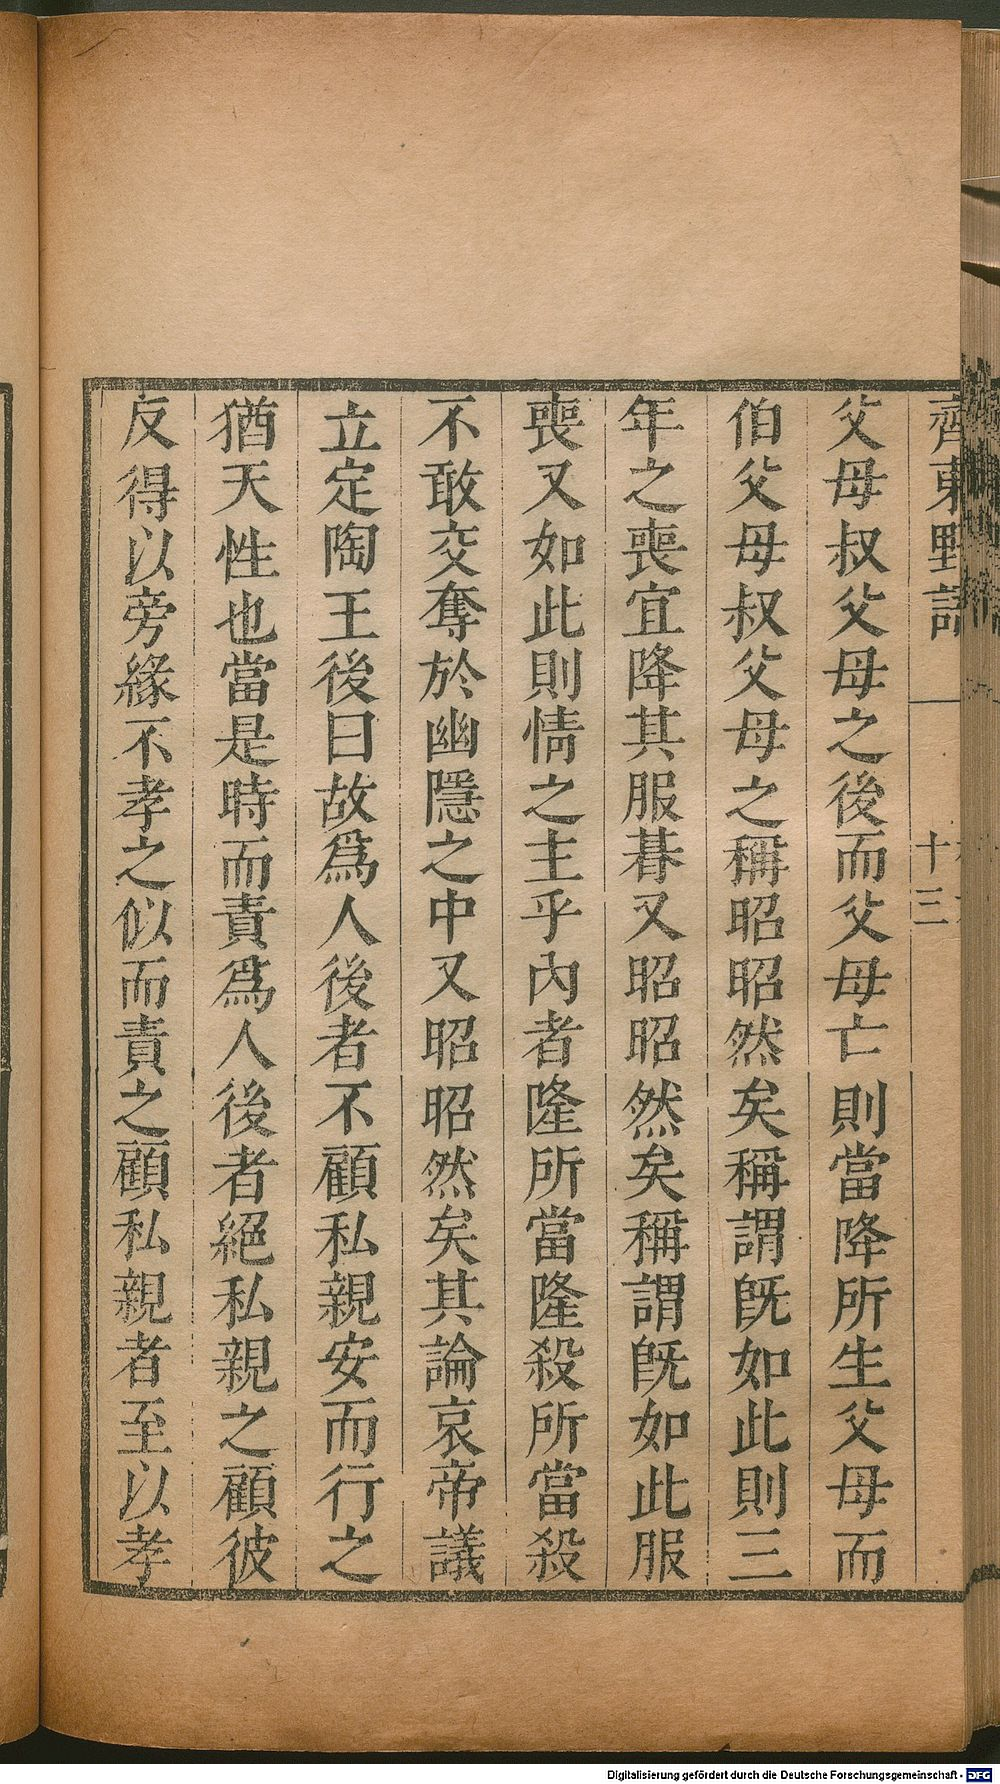 齊東野語
十三
父母叔父母之後而父母亡則當降所生父母而
伯父母叔父母之稱昭昭然矣稱謂旣如此則三
年之喪宜降其服朞又昭昭然矣稱謂旣如此服
喪又如此則情之主乎內者隆所當隆殺所當殺
不敢交奪於幽隱之中又昭昭然矣其論哀帝議
立定陶王後曰故爲人後者不顧私親安而行之
猶天性也當是時而責爲人後者絕私親之顧彼
反得以旁緣不孝之似而責之顧私親者至以孝
Digitalisierung gefördert durch die Deutsche Forschungsgemeinschaft - DFG